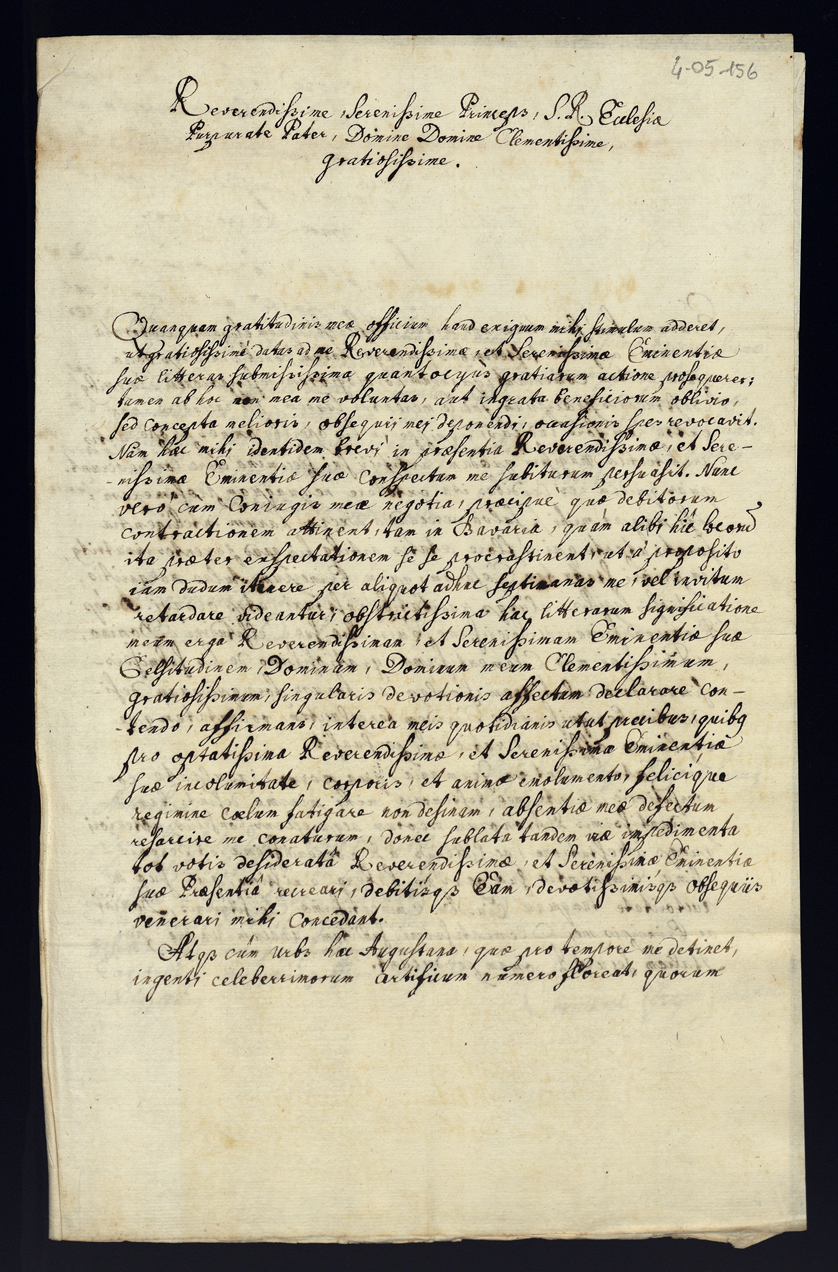 4-05-156
Reverendissime, Serenissime Princeps, S. R. Ecclesiæ
Purpurate Pater, Domine Domine Clementissime,
gratiosissime.
Quanquam gratitudinis meæ officium haud exiguum mihi stimulum adderet,
ut gratiosissimè datas ad me Reverendissimæ, et Serenissimæ Eminentiæ
suæ litteras submississima quantocyus gratiarum actione prosequerer;
tamen ab hoc non mea me voluntas, aut ingrata beneficiorum oblivio,
sed concepta melioris, obsequii mei deponendi, occasionis spes revocavit.
Nam hæc mihi identidem brevi in præsentia Reverendissimæ, et Sere-
-nissimæ Eminentiæ suæ conspectum me subiturum persuasit. Nunc
verò cum Coniugis meæ negotia, præcipue quæ debitorum
contractionem attinent, tam in Bavaria, quàm alibi hîc locorũ
ita præter exspectationem se se procrastinent, ut à proposito
iam dudum itinere per aliquot adhuc septimanas me, vel invitum
retardare videantur, obstrictissima hac litterarum significatione
meum erga Reverendissimam, et Serenissimam Eminentiæ suæ
Celsitudinem, Dominum, Dominum meum Clementissimum,
gratiosissimum, singularis devotionis affectum declarare con-
-tendo, affirmans, interea meis quotidianis utut precibus, quibq
pro optatissima Reverendissimæ, et Serenissimæ Eminentiæ
suæ incolumitate, corporis, et animæ emolumento, felicique
regimine cœlum fatigare non desinam, absentiæ meæ defectum
resarcire me conaturum, donec sublata tandem viæ impedimenta
tot votis desideratâ Reverendissimæ, et Serenissimæ Eminentiæ
suæ Præsentiâ recreari, debitisqs Eam, devotissimisqs obsequiis
venerari mihi concedant.
Atqs cùm urbs hæc Augustana, quæ pro tempore me detinet,
ingenti celeberrimorum artificum numero floreat, quorum